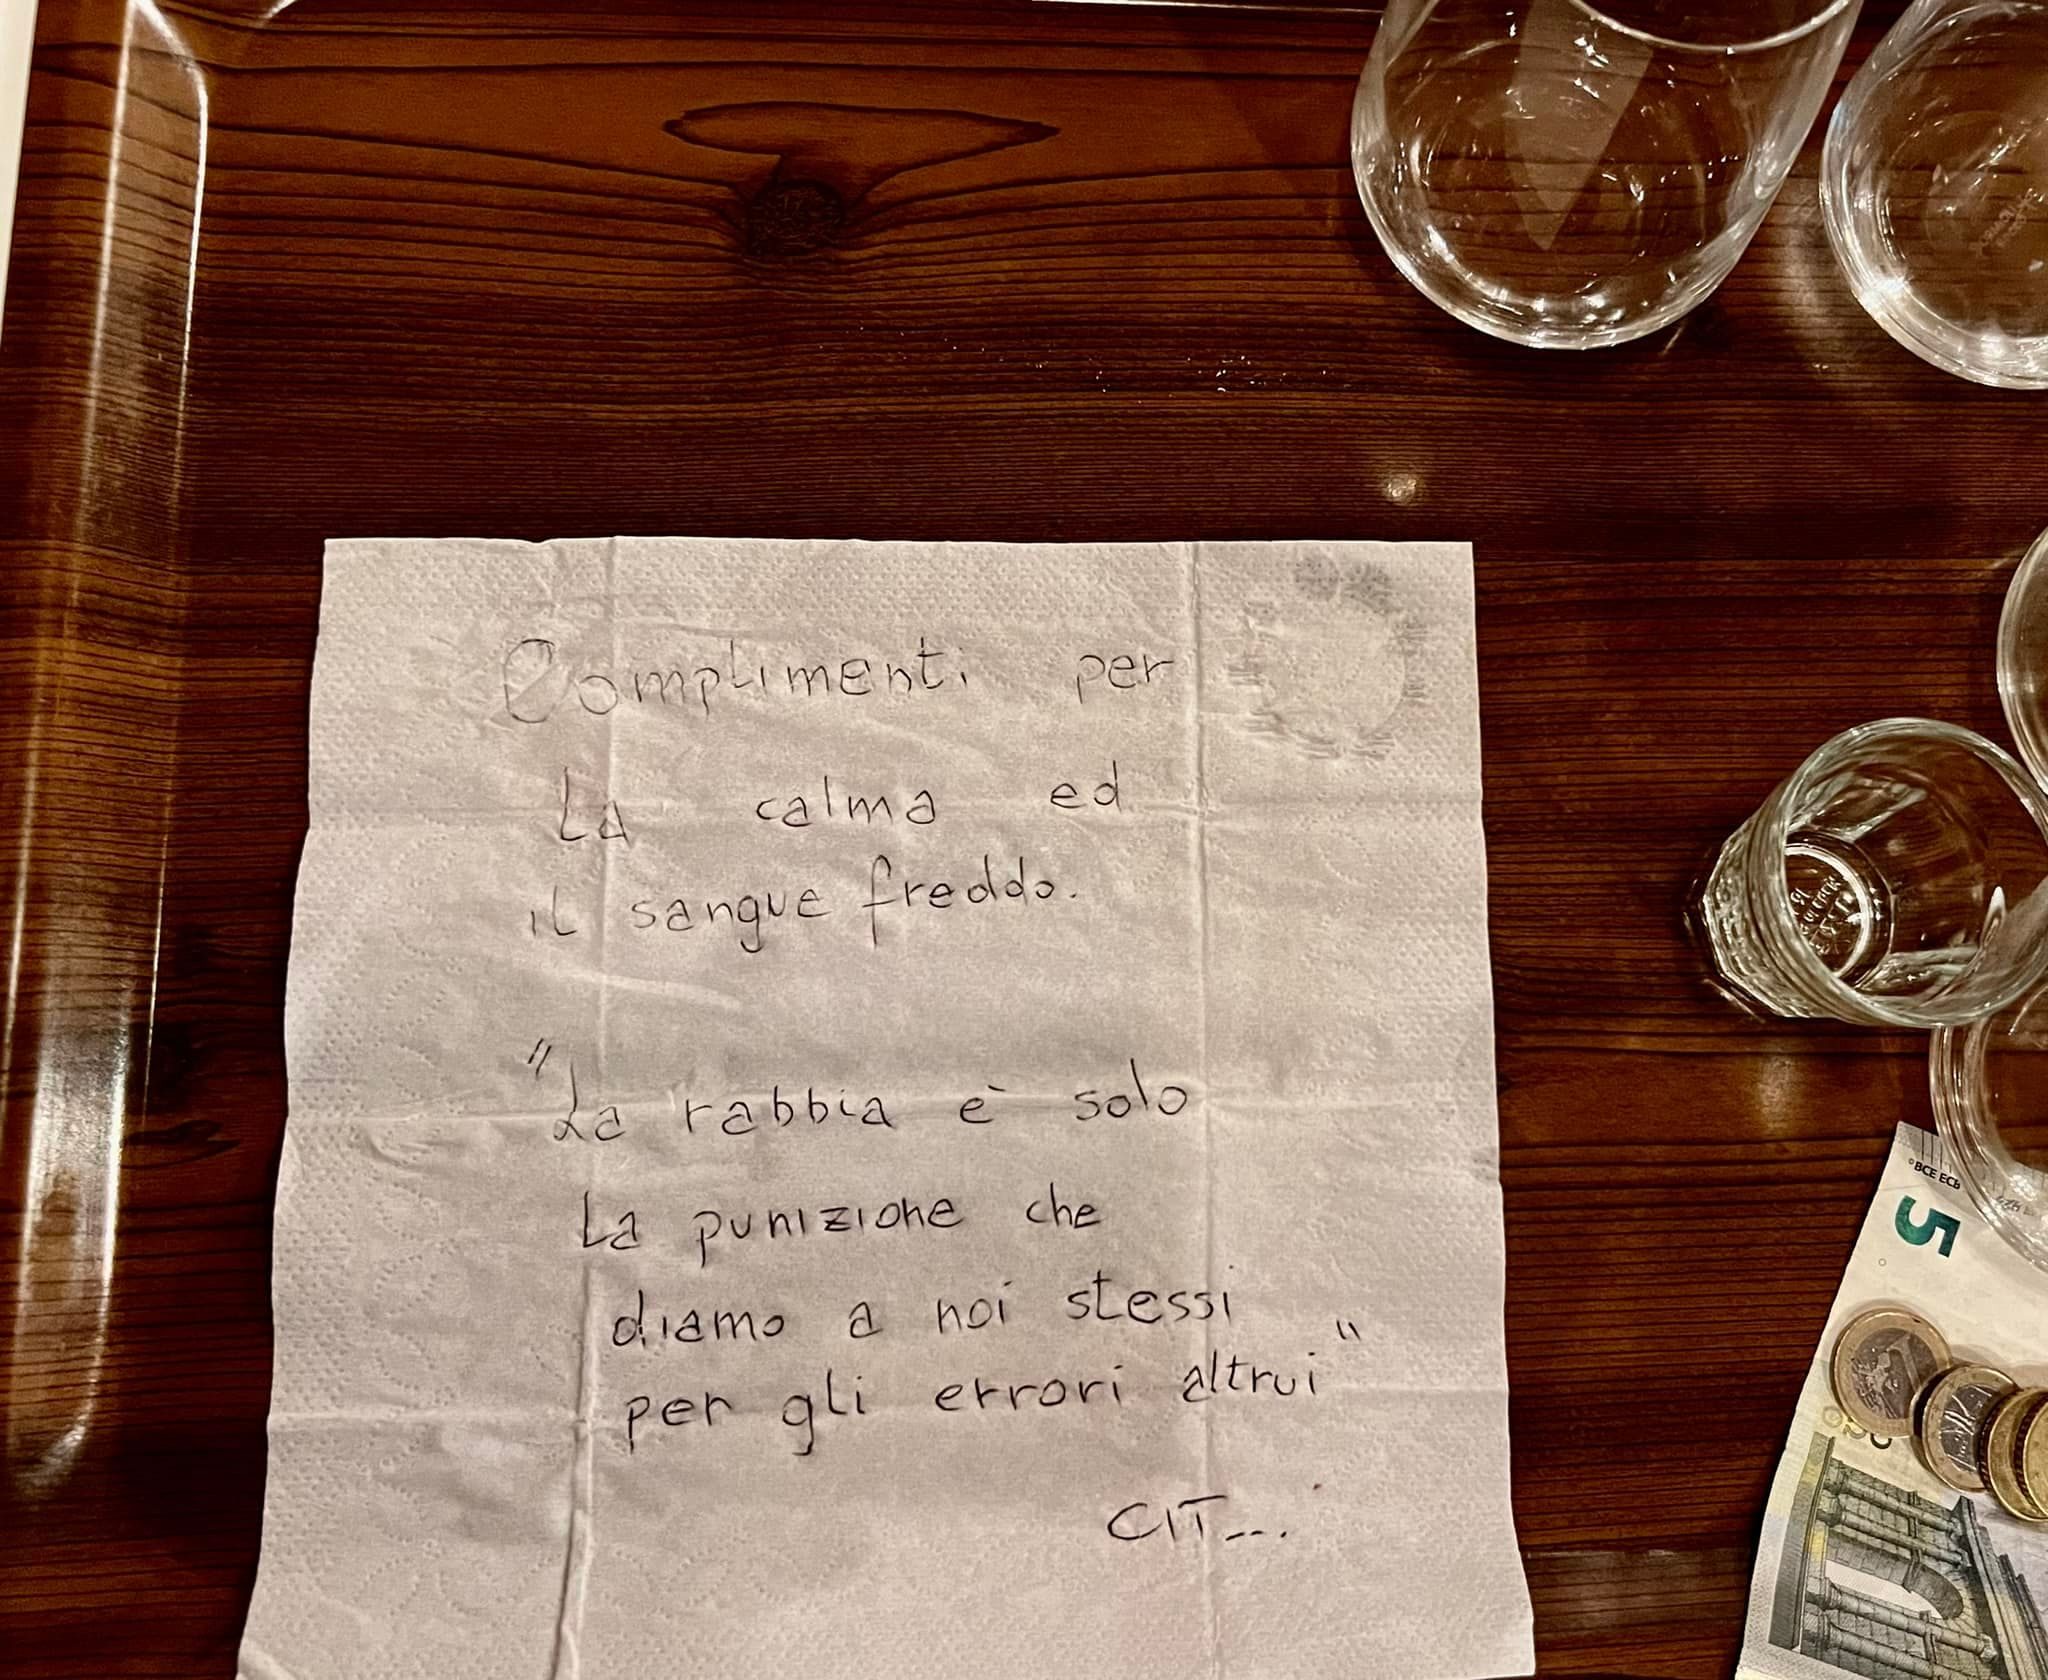 Complimenti per
La calma ed
il sangue freddo.
"La rabbia è solo
La punizione che
diamo a noi stessi
per gli errori altrui"
CIT...
BCE ECB
5